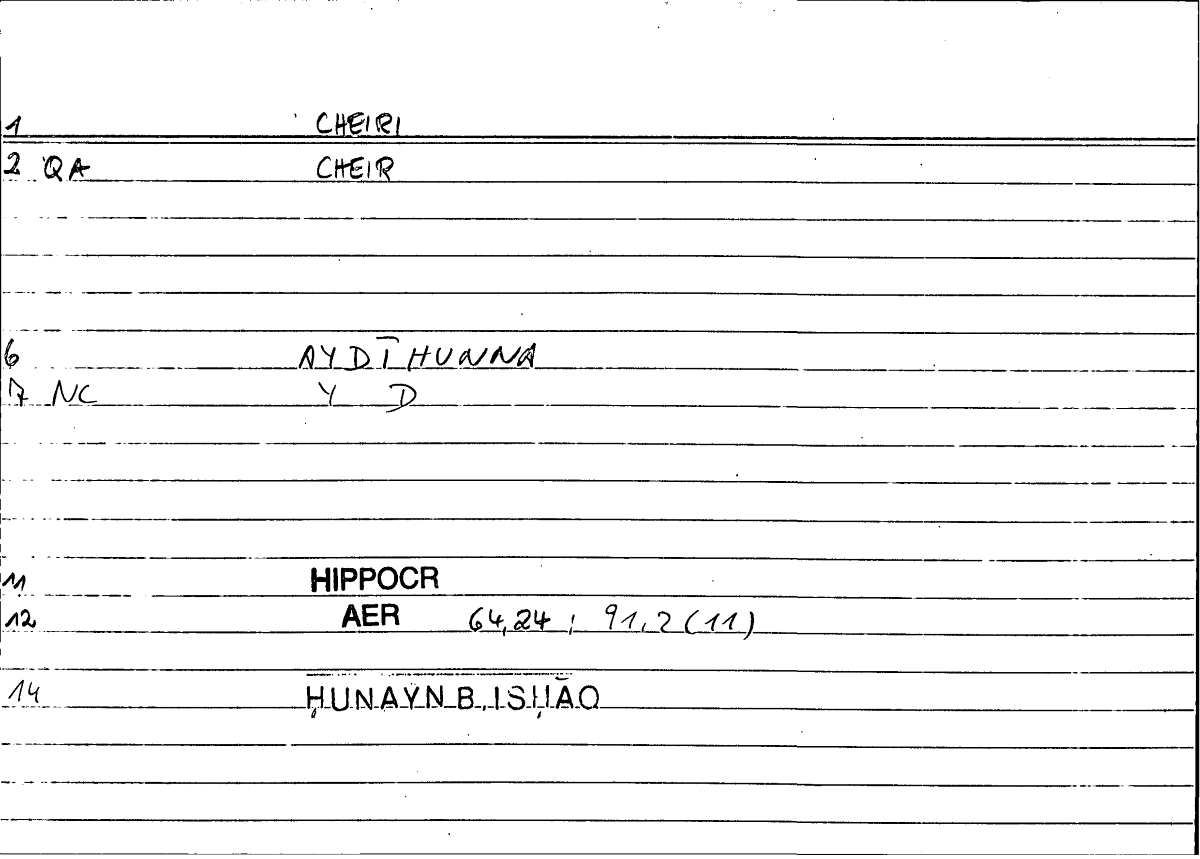 1 CHEIRI
2 QA CHEIR
6 AYDĪHUNNA
7 NC Y D
11 HIPPOCR
12 AER 64,24 ; 91,2 (11)
14 ḤUNAYN B. ISḤĀQ